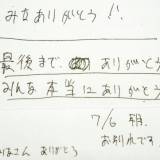 みなありがとう!!
最後まで、ありがとう
みんな本当にありがとう
7/6 朝、
お別れです
みなさん ありがとう